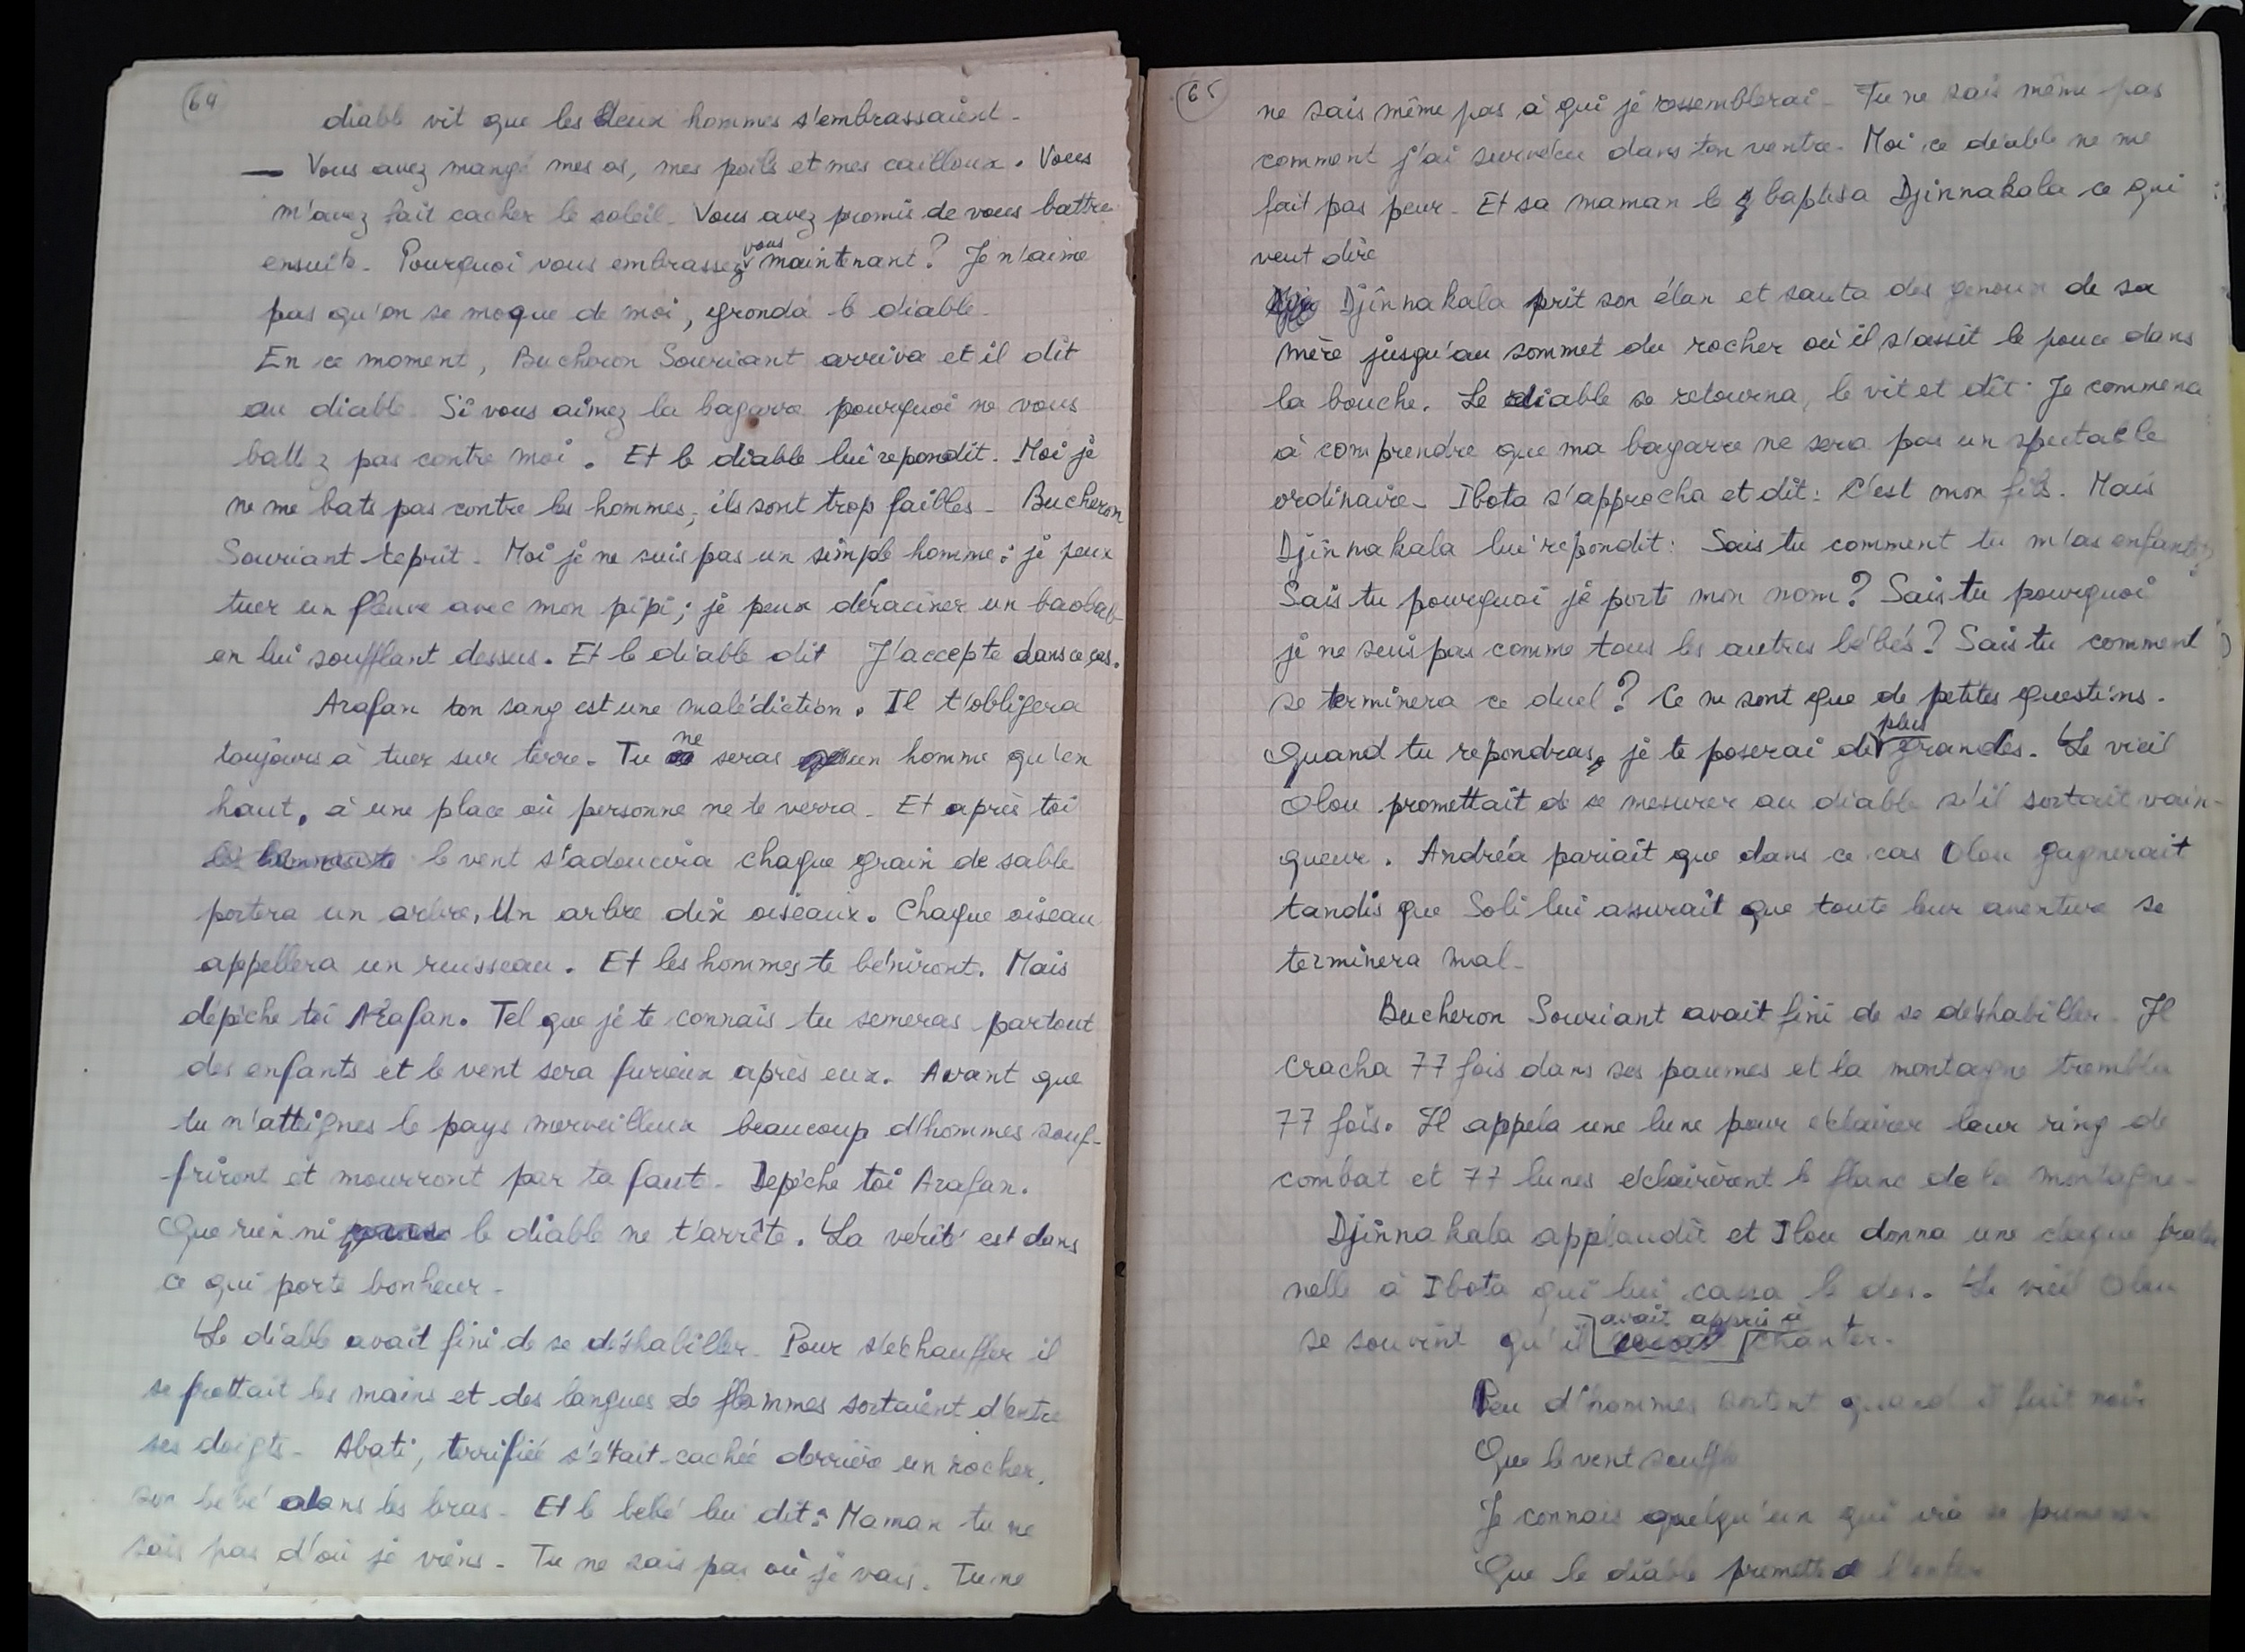 64
diable vit que les deux hommes s'embrassaient.
— Vous avez mangé mes os, mes poils et mes cailloux. Vous
m'avez fait cacher le soleil. Vous avez promis de vous battre
ensuite. Pourquoi vous embrassez vous maintenant? Je n'aime
pas qu'on se moque de moi, gronda le diable.
En ce moment, Bucheron Souriant arriva et il dit
au diable. Si vous aimez la bagarre pourquoi ne vous
battez pas contre moi. Et le diable lui repondit. Moi je
ne me bats pas contre les hommes, ils sont trop faibles. Bucheron
Souriant reprit. Moi je ne suis pas un simple homme: je peux
tuer un fleuve avec mon pipi; je peux déraciner un baobab
en lui soufflant dessus. Et le diable dit J'accepte dans ce cas.
Arafan ton sang est une malédiction. Il t'obligera
toujours à tuer sur terre. Tu ne seras un homme qu'en
haut, à une place où personne ne te verra. Et après toi
le vent s'adoucira chaque grain de sable
portera un arbre, Un arbre dix oiseaux. Chaque oiseau
appellera un ruisseau. Et les hommes te béniront. Mais
dépèche toi Arafan. Tel que je te connais tu semeras partout
des enfants et le vent sera furieux après eux. Avant que
tu n'atteignes le pays merveilleux beaucoup d'hommes souf-
friront et mourront par ta faute. Depèche toi Arafan.
Que rien ni le diable ne t'arrête. La vérité est dans
ce qui porte bonheur.
Le diable avait fini de se déshabiller. Pour s'échauffer il
se frottait les mains et des langues de flammes sortaient d'entre
ses doigts. Abati, terrifiée s'était cachée derrière un rocher,
son bébé dans les bras. Et le bébé lui dit: Maman tu ne
sais pas d'où je viens. Tu ne sais pas où je vais. Tu ne
65
ne sais même pas à qui je ressemblerai. Tu ne sais même pas
comment j'ai survécu dans ton ventre. Moi ce diable ne me
fait pas peur. Et sa maman le baptisa Djinnakala ce qui
veut dire
Djinnakala prit son élan et sauta des genoux de sa
mère jusqu'au sommet du rocher où il s'assit le pouce dans
la bouche. Le diable se retourna, le vit et dit: Je commence
à comprendre que ma bagarre ne sera pas un spectacle
ordinaire. Ibota s'approcha et dit: C'est mon fils. Mais
Djinnakala lui repondit: Sais tu comment tu m'as enfanté?
Sais tu pourquoi je porte mon nom? Sais tu pourquoi
je ne suis pas comme tous les autres bébés? Sais tu comment
se terminera ce duel? Ce ne sont que de petites questions.
Quand tu repondras, je te poserai de plus grandes. Le vieil
Olou promettait de se mesurer au diable s'il sortait vain-
queur. Andréa pariait que dans ce cas Olou gagnerait
tandis que Soli lui assurait que toute leur aventure se
terminera mal.
Bucheron Souriant avait fini de se déshabiller. Il
cracha 77 fois dans ses paumes et la montagne trembla
77 fois. Il appela une lune pour éclairer leur ring de
combat et 77 lunes éclairèrent le flanc de la montagne.
Djinnakala applaudit et Ilou donna une claque frater
nelle à Ibota qui lui cassa le dos. Le vieil Olou
se souvint qu'il avait appris à chanter.
Peu d'hommes sortent quand il fait noir
Que le vent souffle
Je connais quelqu'un qui ira se promener
Que le diable promette l'enfer